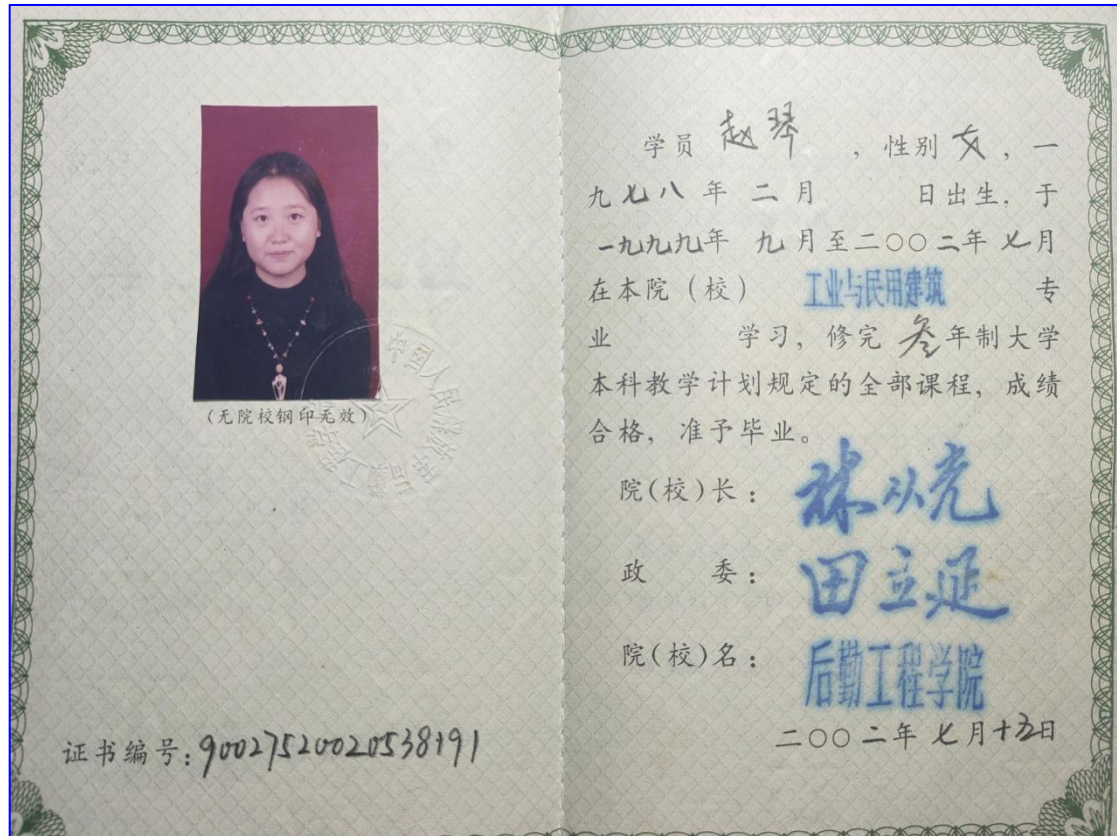 (无院校钢印无效)
证书编号:90027520020538191
学员 赵琴 , 性别 女 , 一
九七八年 二月 日出生, 于
一九九九年 九月至二〇〇二年 七月
在本院(校) 工业与民用建筑 专
业 学习, 修完 叁年制大学
本科教学计划规定的全部课程, 成绩
合格, 准予毕业。
院(校)长:
政 委: 田立延
院(校)名: 后勤工程学院
二〇〇二年 七月十五日